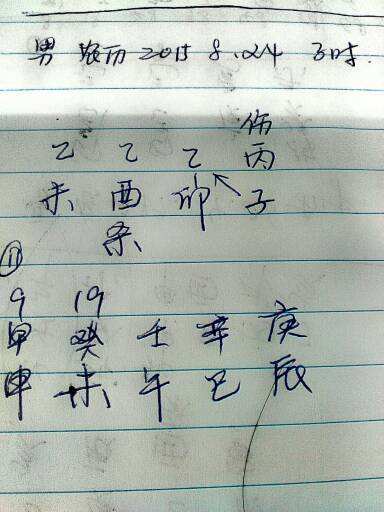 男 历 2015 8.24 子时
伤
乙 乙 乙 丙
未 酉 卯 子
杀
⑪
9 19
甲 癸 壬 辛 庚
申 未 午 巳 辰